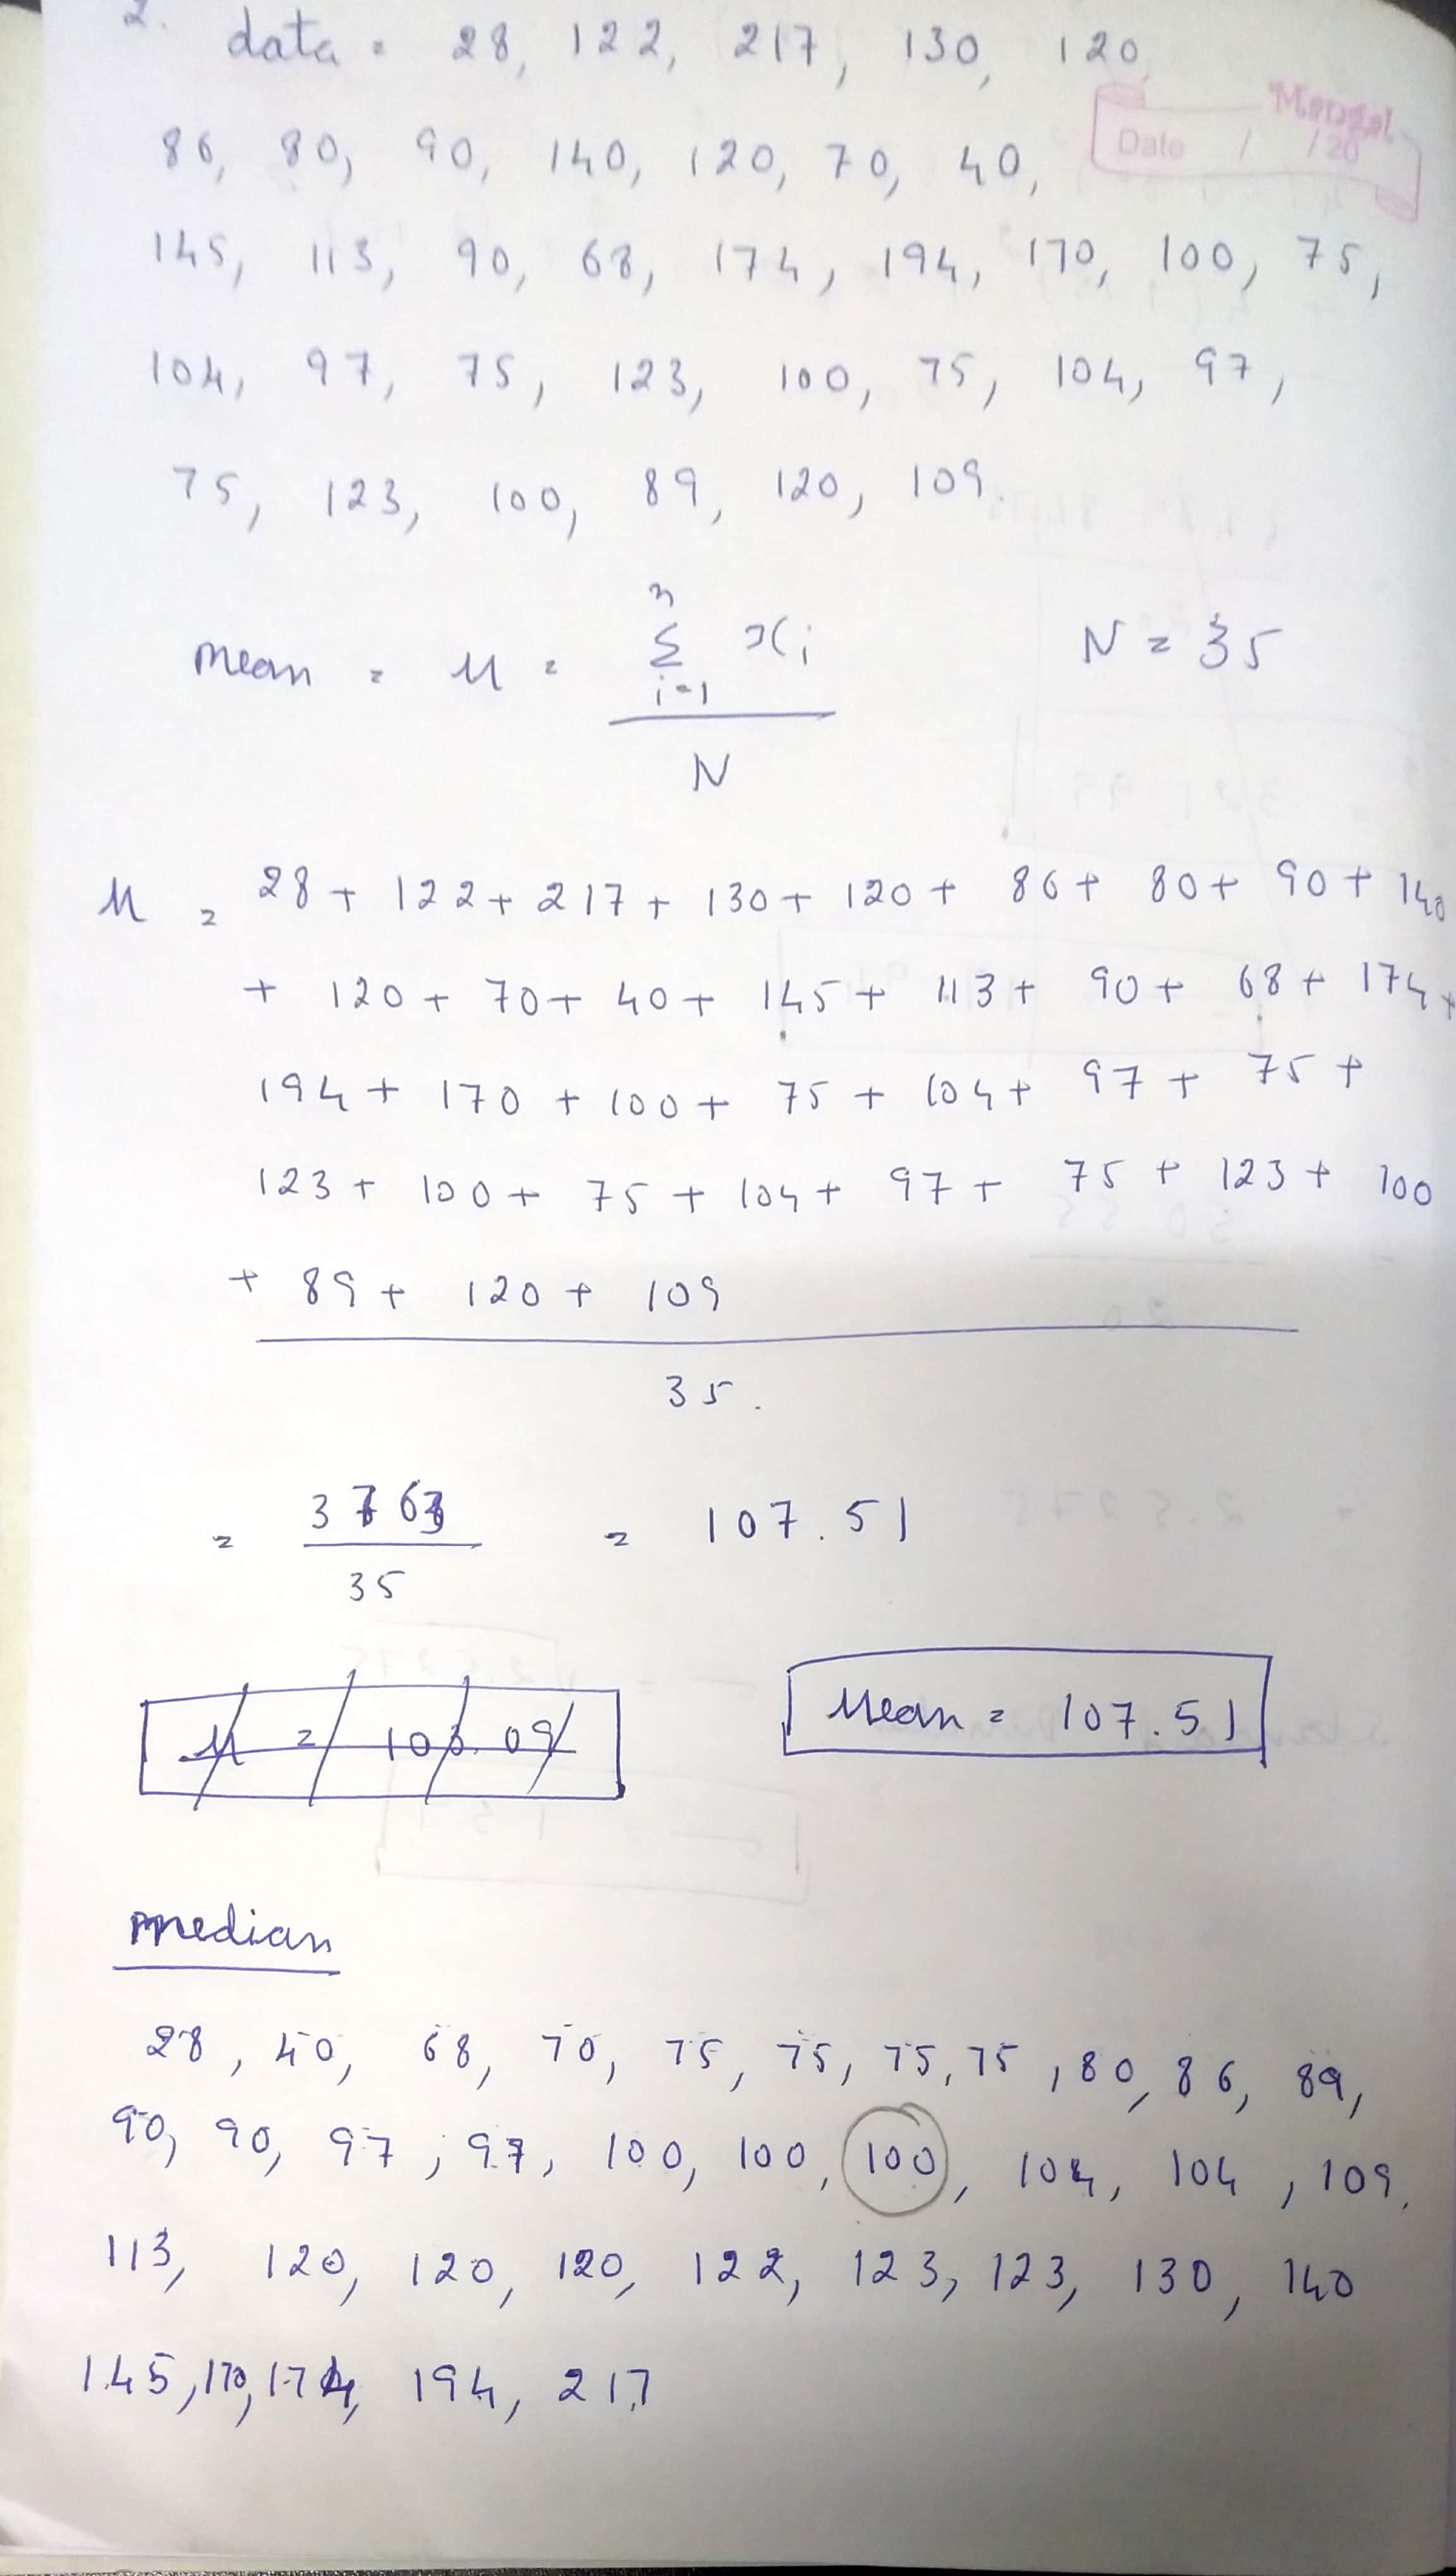 2. data = 28, 122, 217, 130, 120,
Mangal
Date / /20
86, 80, 90, 140, 120, 70, 40,
145, 113, 90, 68, 174, 194, 170, 100, 75,
104, 97, 75, 123, 100, 75, 104, 97,
75, 123, 100, 89, 120, 109.
mean = μ = Σ xi / N
n
i=1
N = 35
μ = 28 + 122 + 217 + 130 + 120 + 86 + 80 + 90 + 140
+ 120 + 70 + 40 + 145 + 113 + 90 + 68 + 174 +
194 + 170 + 100 + 75 + 104 + 97 + 75 +
123 + 100 + 75 + 104 + 97 + 75 + 123 + 100
+ 89 + 120 + 109
35.
= 3763 / 35 = 107.51
Mean = 107.51
median
28, 40, 68, 70, 75, 75, 75, 75, 80, 86, 89,
90, 90, 97, 97, 100, 100, 100, 104, 104, 109.
113, 120, 120, 120, 122, 123, 123, 130, 140
145, 170, 174, 194, 217